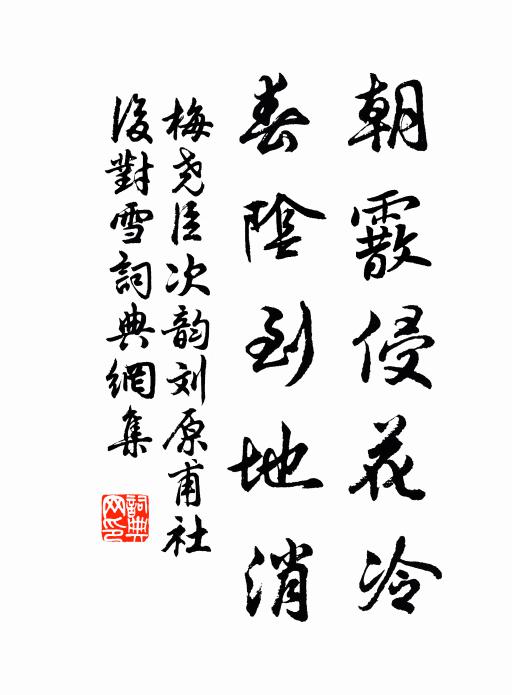 朝霰侵花冷
春陰到地消
梅尧臣次韵刘原甫社
後對雪詞典網集
詞典网印